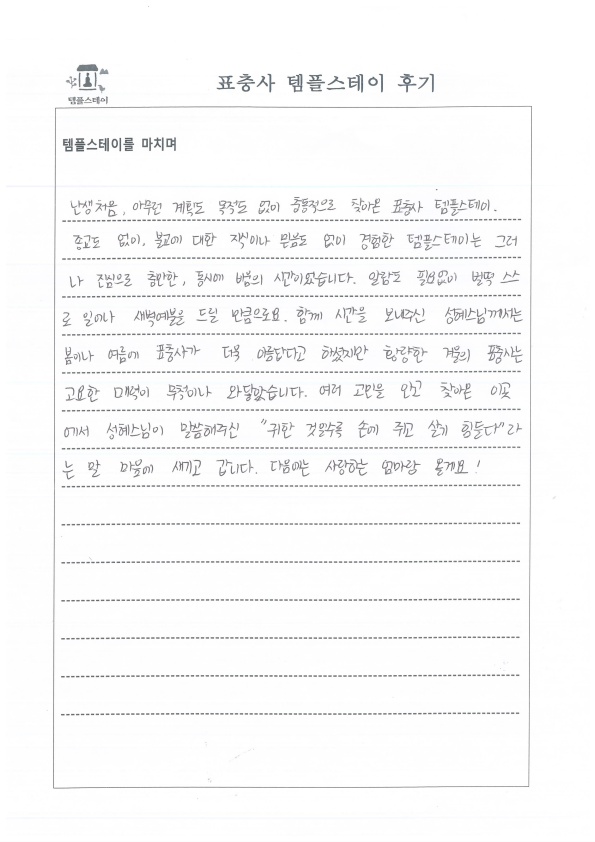 템플스테이
표충사 템플스테이 후기
템플스테이를 마치며
난생처음, 아무런 계획도 목적도 없이 충동적으로 찾아온 표충사 템플스테이.
종교도 없이, 불교에 대한 지식이나 믿음도 없이 경험한 템플스테이는 그러
나 진심으로 충만한, 동시에 비움의 시간이었습니다. 알람도 필요없이 번떡 스스
로 일어나 새벽예불을 드릴 만큼으로요. 함께 시간을 보내주신 성혜스님께서는
봄이나 여름에 표충사가 더욱 아름답다고 하셨지만 황량한 겨울의 표충사는
고요한 매력이 무척이나 와닿았습니다. 여러 고민을 안고 찾아온 이곳
에서 성혜스님이 말씀해주신 "귀한 것일수록 손에 쥐고 살기 힘들다"라
는 말 마음에 새기고 갑니다. 다음에는 사랑하는 엄마랑 올게요!